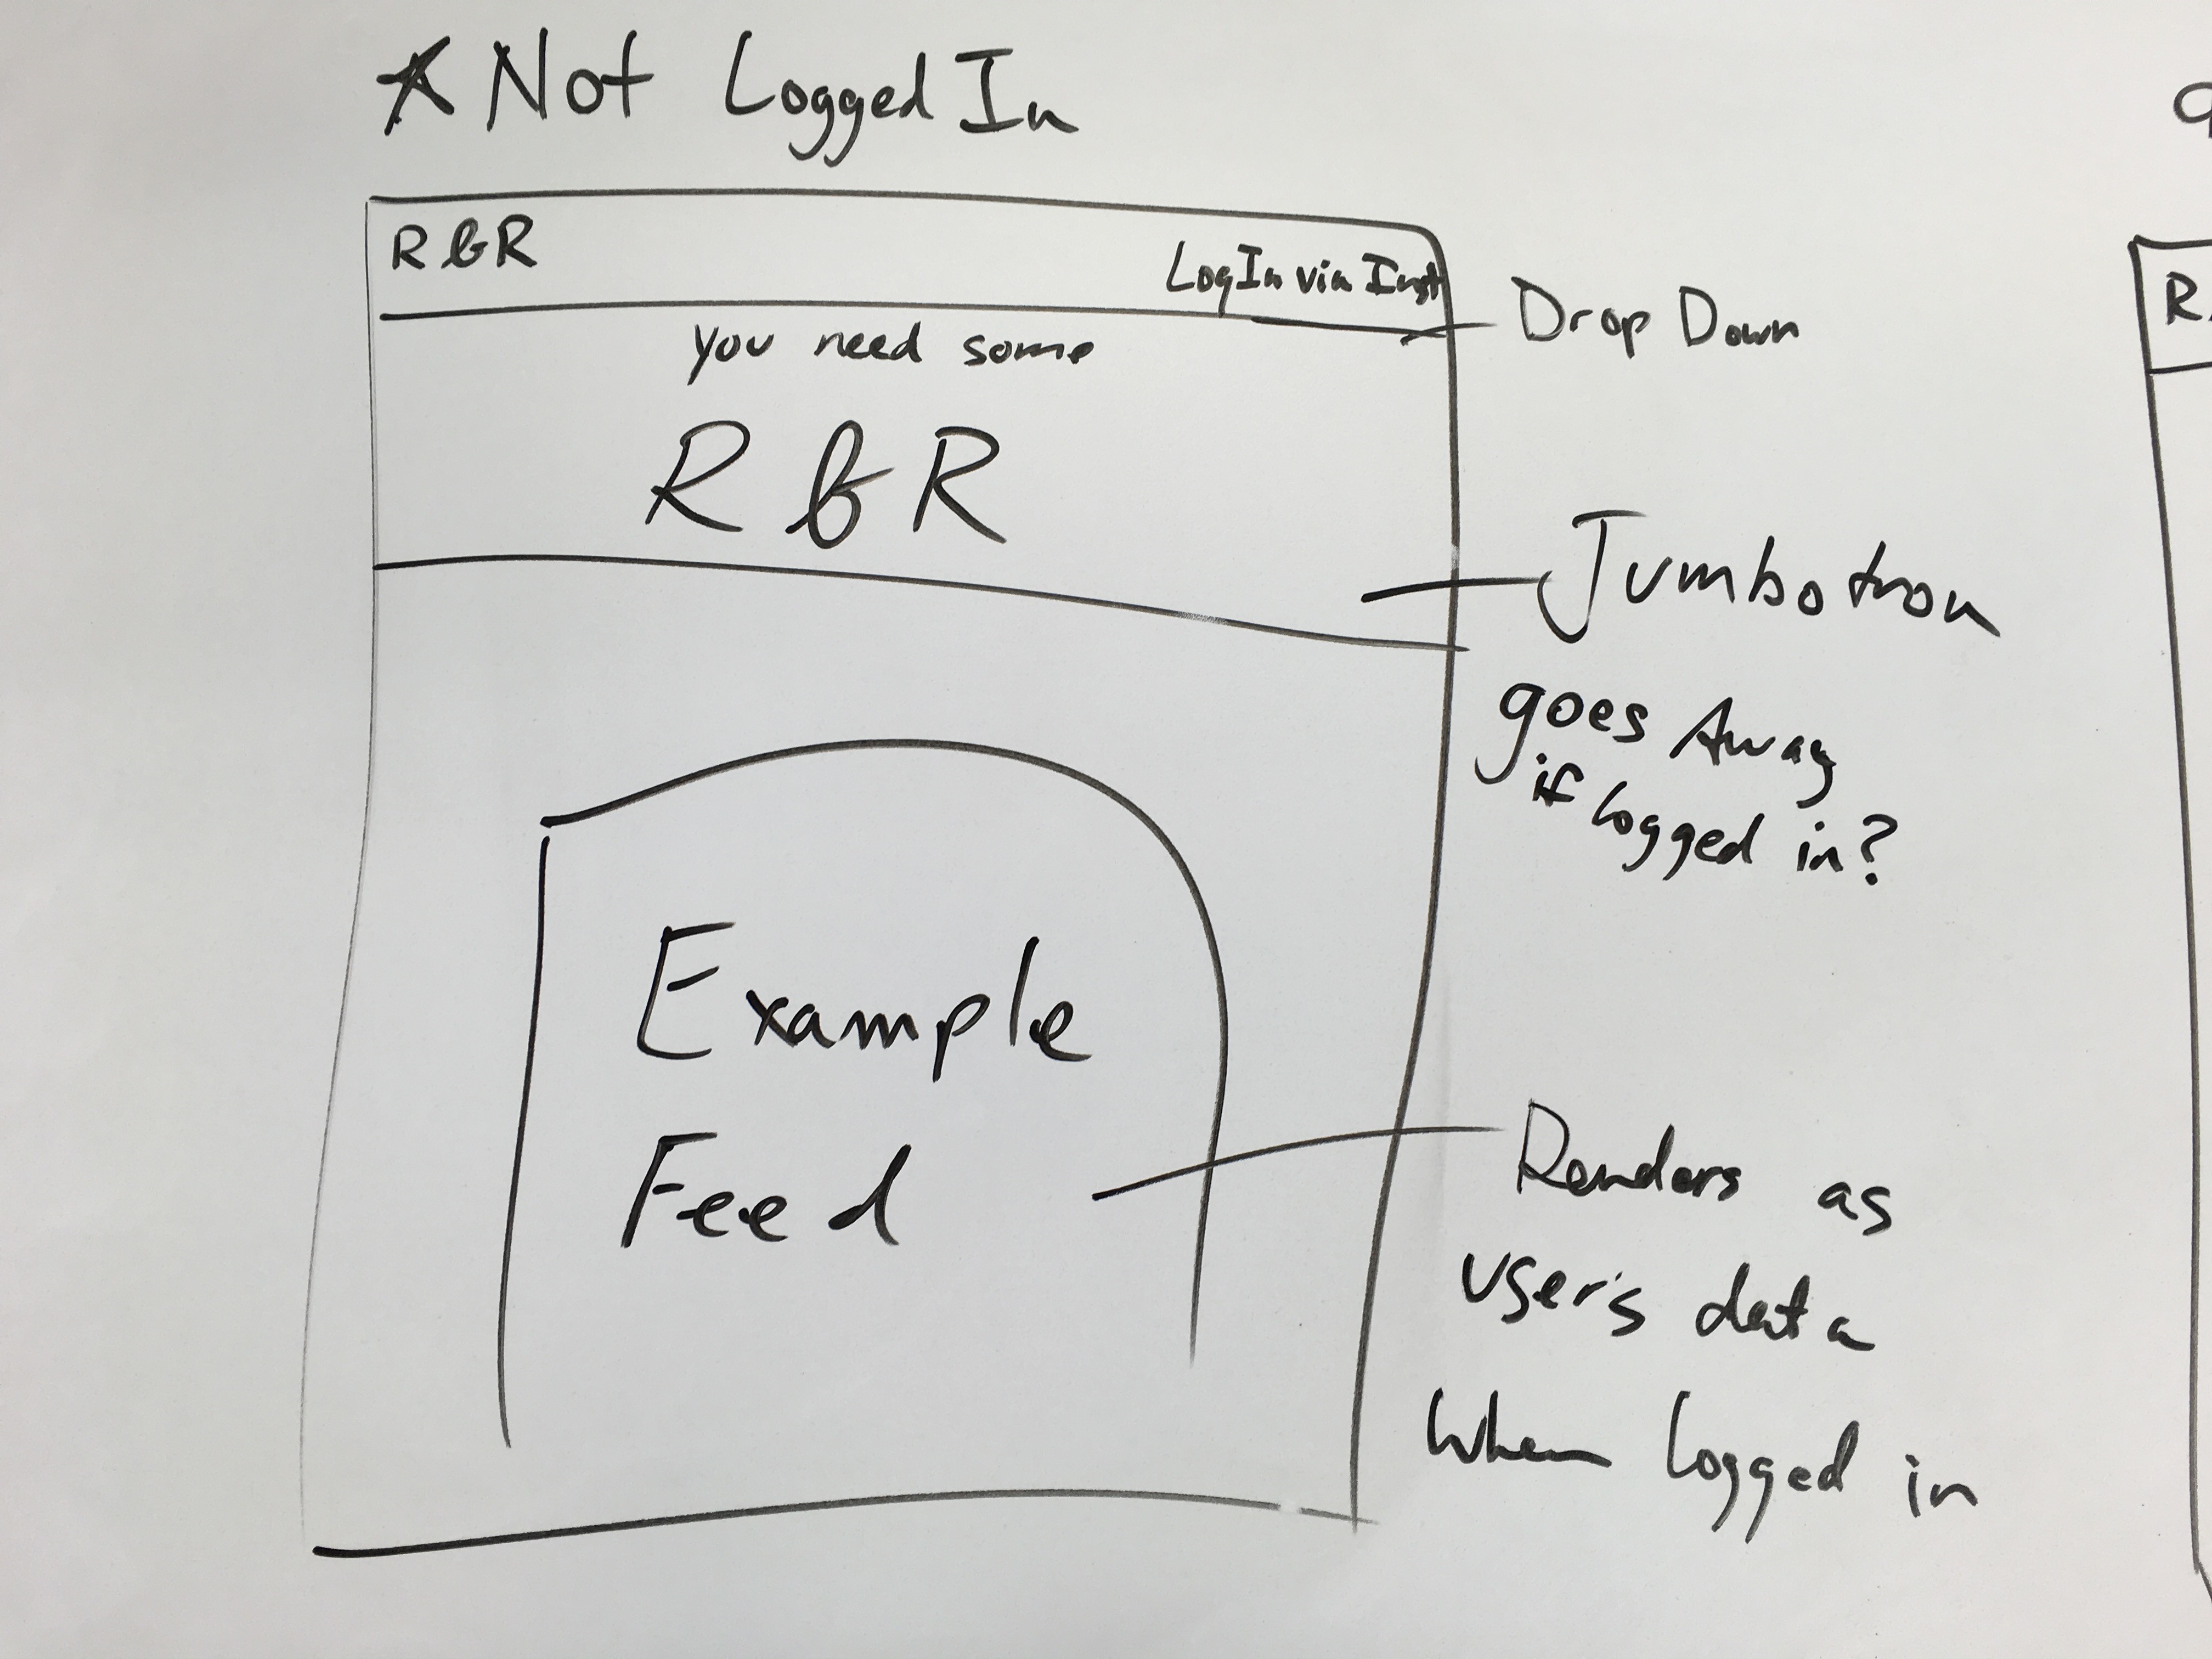 * Not Logged In
R & R
Log In via Inst
Drop Down
you need some
R & R
Jumbotron
goes Away
if logged in?
Example
Feed
Renders as
user's data
when logged in
R